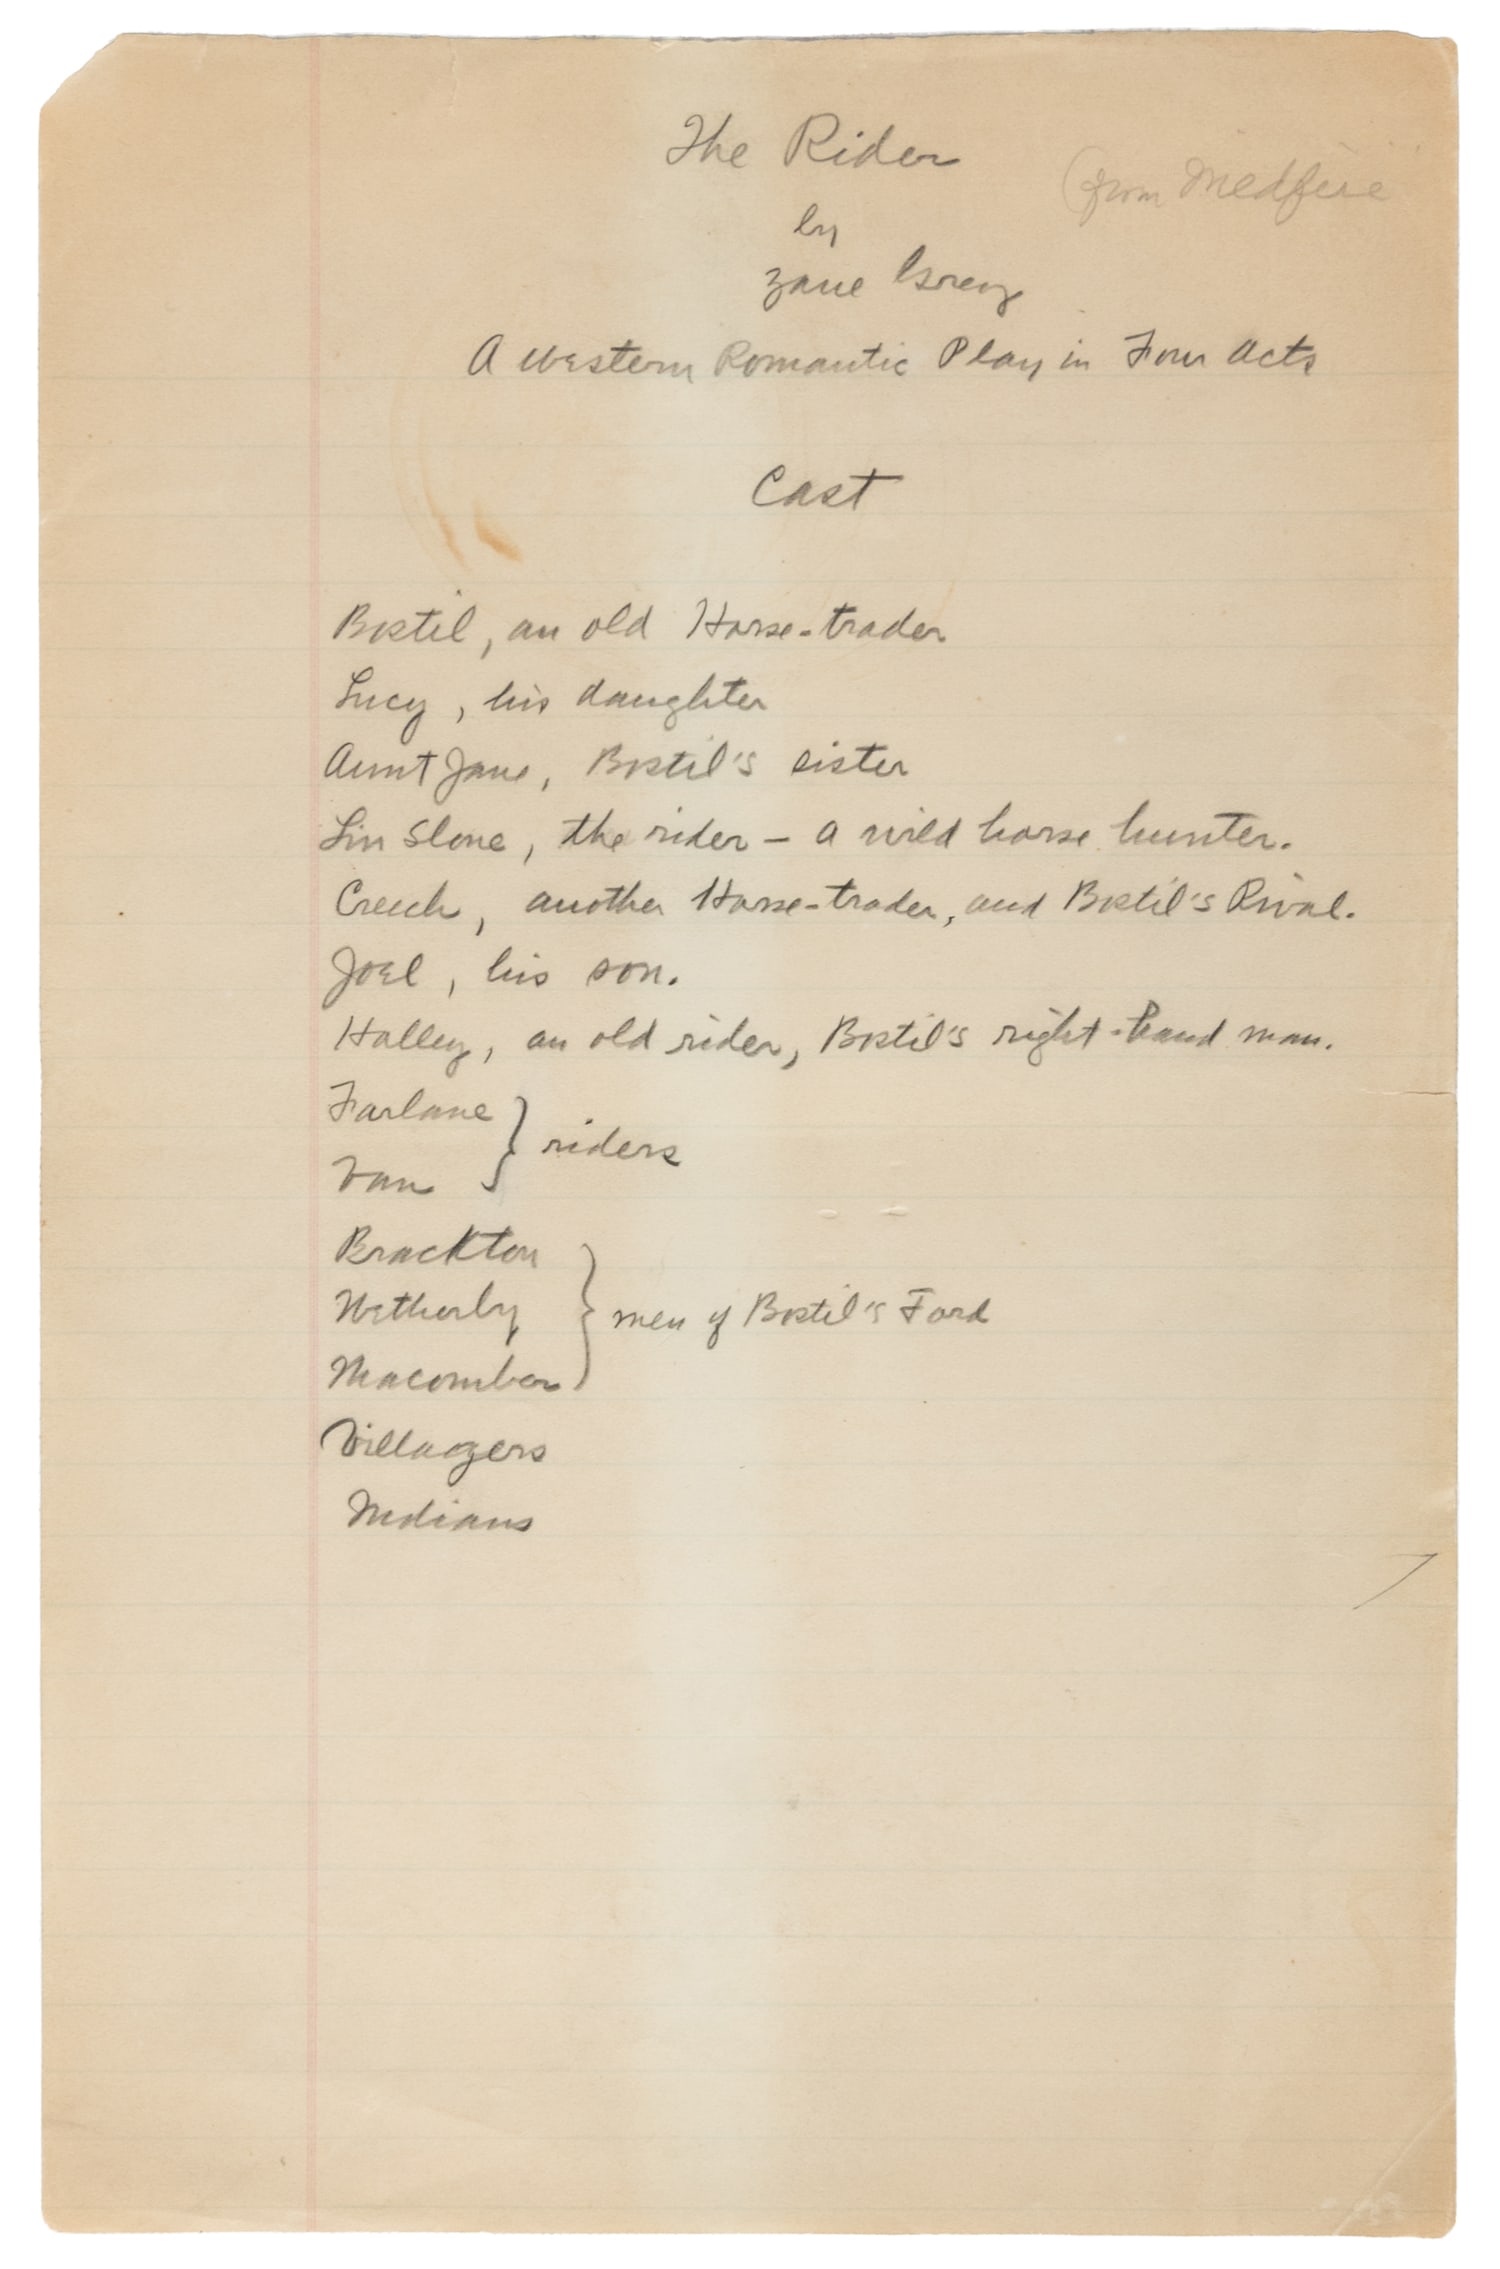 The Rider
(from Wildfire
by
Zane Grey
A Western Romantic Play in Four Acts
Cast
Bostil, an old Horse-trader
Lucy, his daughter
Aunt Jane, Bostil's sister
Lin Slone, the rider — a wild horse hunter.
Creech, another Horse-trader, and Bostil's Rival.
Joel, his son.
Holley, an old rider, Bostil's right-hand man.
Farlane
Van } riders
Brackton
Wetherby } men of Bostil's Ford
Macomber
Villagers
Indians